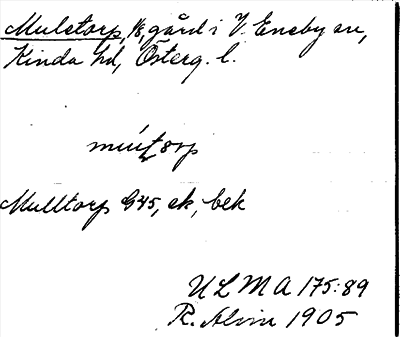 Mulstorp, 1/8, gård i V. Eneby sn,
Kinda hd, Österg. l.
Mulltorp G45, ek, bek
ULMA 175:89
R. Alvin 1905